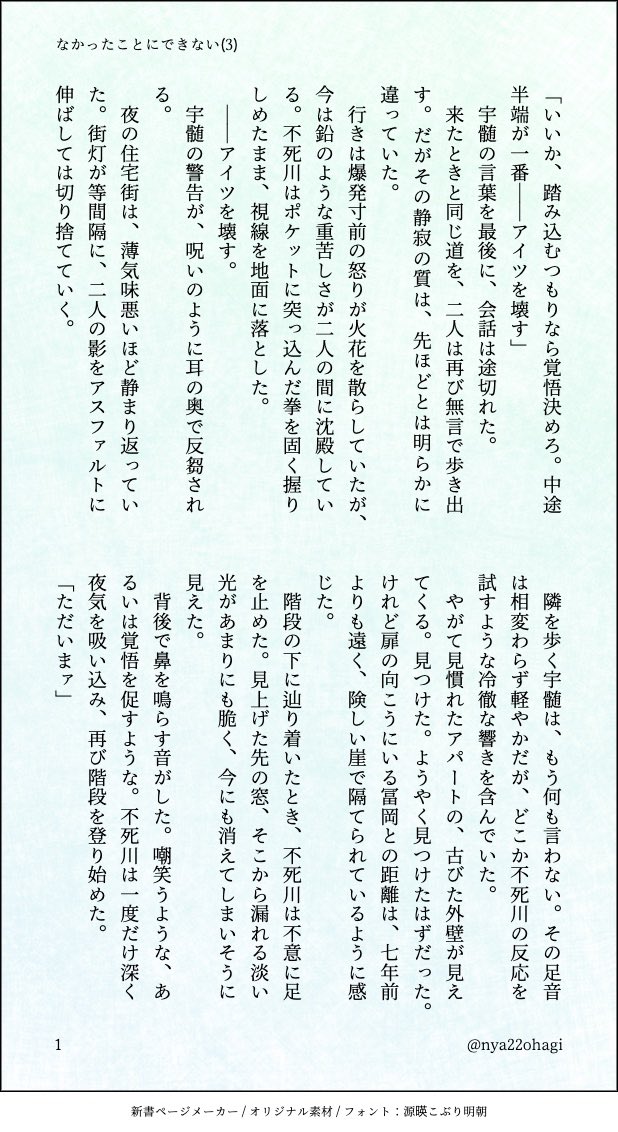 なかったことにできない(3)
「いいか、踏み込むつもりなら覚悟決めろ。中途
半端が一番――アイツを壊す」
宇髄の言葉を最後に、会話は途切れた。
来たときと同じ道を、二人は再び無言で歩き出
す。だがその静寂の質は、先ほどとは明らかに
違っていた。
行きは爆発寸前の怒りが火花を散らしていたが、
今は鉛のような重苦しさが二人の間に沈殿してい
る。不死川はポケットに突っ込んだ拳を固く握り
しめたまま、視線を地面に落とした。
――アイツを壊す。
宇髄の警告が、呪いのように耳の奥で反芻され
る。
夜の住宅街は、薄気味悪いほど静まり返ってい
た。街灯が等間隔に、二人の影をアスファルトに
伸ばしては切り捨てていく。
隣を歩く宇髄は、もう何も言わない。その足音
は相変わらず軽やかだが、どこか不死川の反応を
試すような冷徹な響きを含んでいた。
やがて見慣れたアパートの、古びた外壁が見え
てくる。見つけた。ようやく見つけたはずだった。
けれど扉の向こうにいる冨岡との距離は、七年前
よりも遠く、険しい崖で隔てられているように感
じた。
階段の下に辿り着いたとき、不死川は不意に足
を止めた。見上げた先の窓、そこから漏れる淡い
光があまりにも脆く、今にも消えてしまいそうに
見えた。
背後で鼻を鳴らす音がした。嘲笑うような、あ
るいは覚悟を促すような。不死川は一度だけ深く
夜気を吸い込み、再び階段を登り始めた。
「ただいまァ」
1
@nya22ohagi
新書ページメーカー / オリジナル素材 / フォント：源暎こぶり明朝